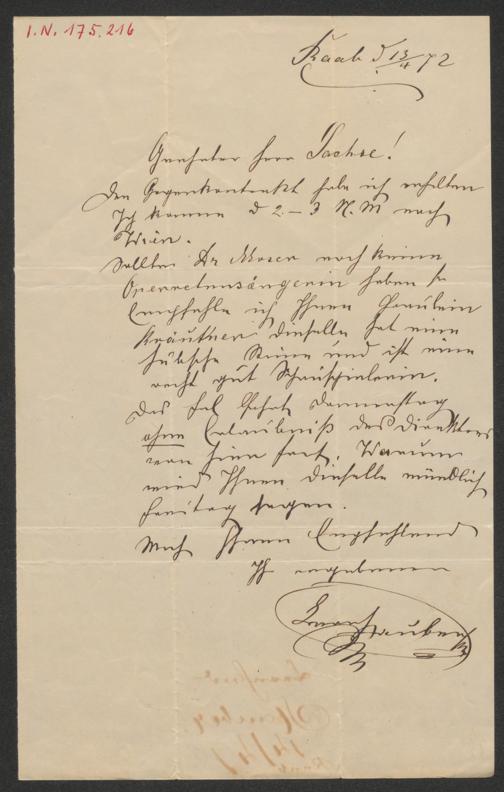 I.N. 175.216
Raab d 13/4 72
Geehrter Herr Sachse!
Den Gegenkontrakt habe ich erhalten
Ich komme d 2–3 N. M nach
Wien.
Sollte Dr Moser noch keine
Operretensängerin haben so
Empfehle ich Ihnen Fräulein
Kräutner dieselbe hat eine
hübsche Stime und ist eine
recht gut Schauspielerin.
Das Frl fährt Donnerstag
ohne Erlaubniß des Direktors
von hier fort. Warum
wird Ihnen dieselbe mündlich
Freitag sagen.
Mich Ihnen Empfehlend
Ihr ergebener